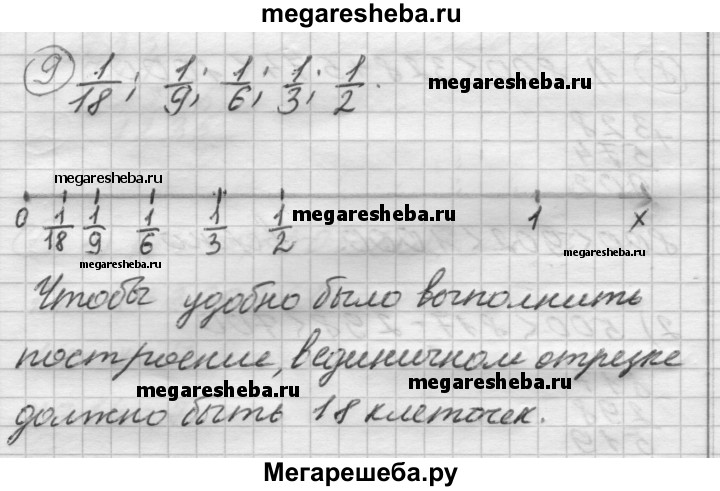 megaresheba.ru
9 1/18; 1/9; 1/6; 1/3; 1/2.
megaresheba.ru
megaresheba.ru
0 1/18 1/9 1/6 1/3 1/2 1 x
megaresheba.ru
megaresheba.ru
megaresheba.ru
Чтобы удобно было выполнить
построение, в единичном отрезке
megaresheba.ru
megaresheba.ru
должно быть 18 клеточек.
Мегарешеба.ру